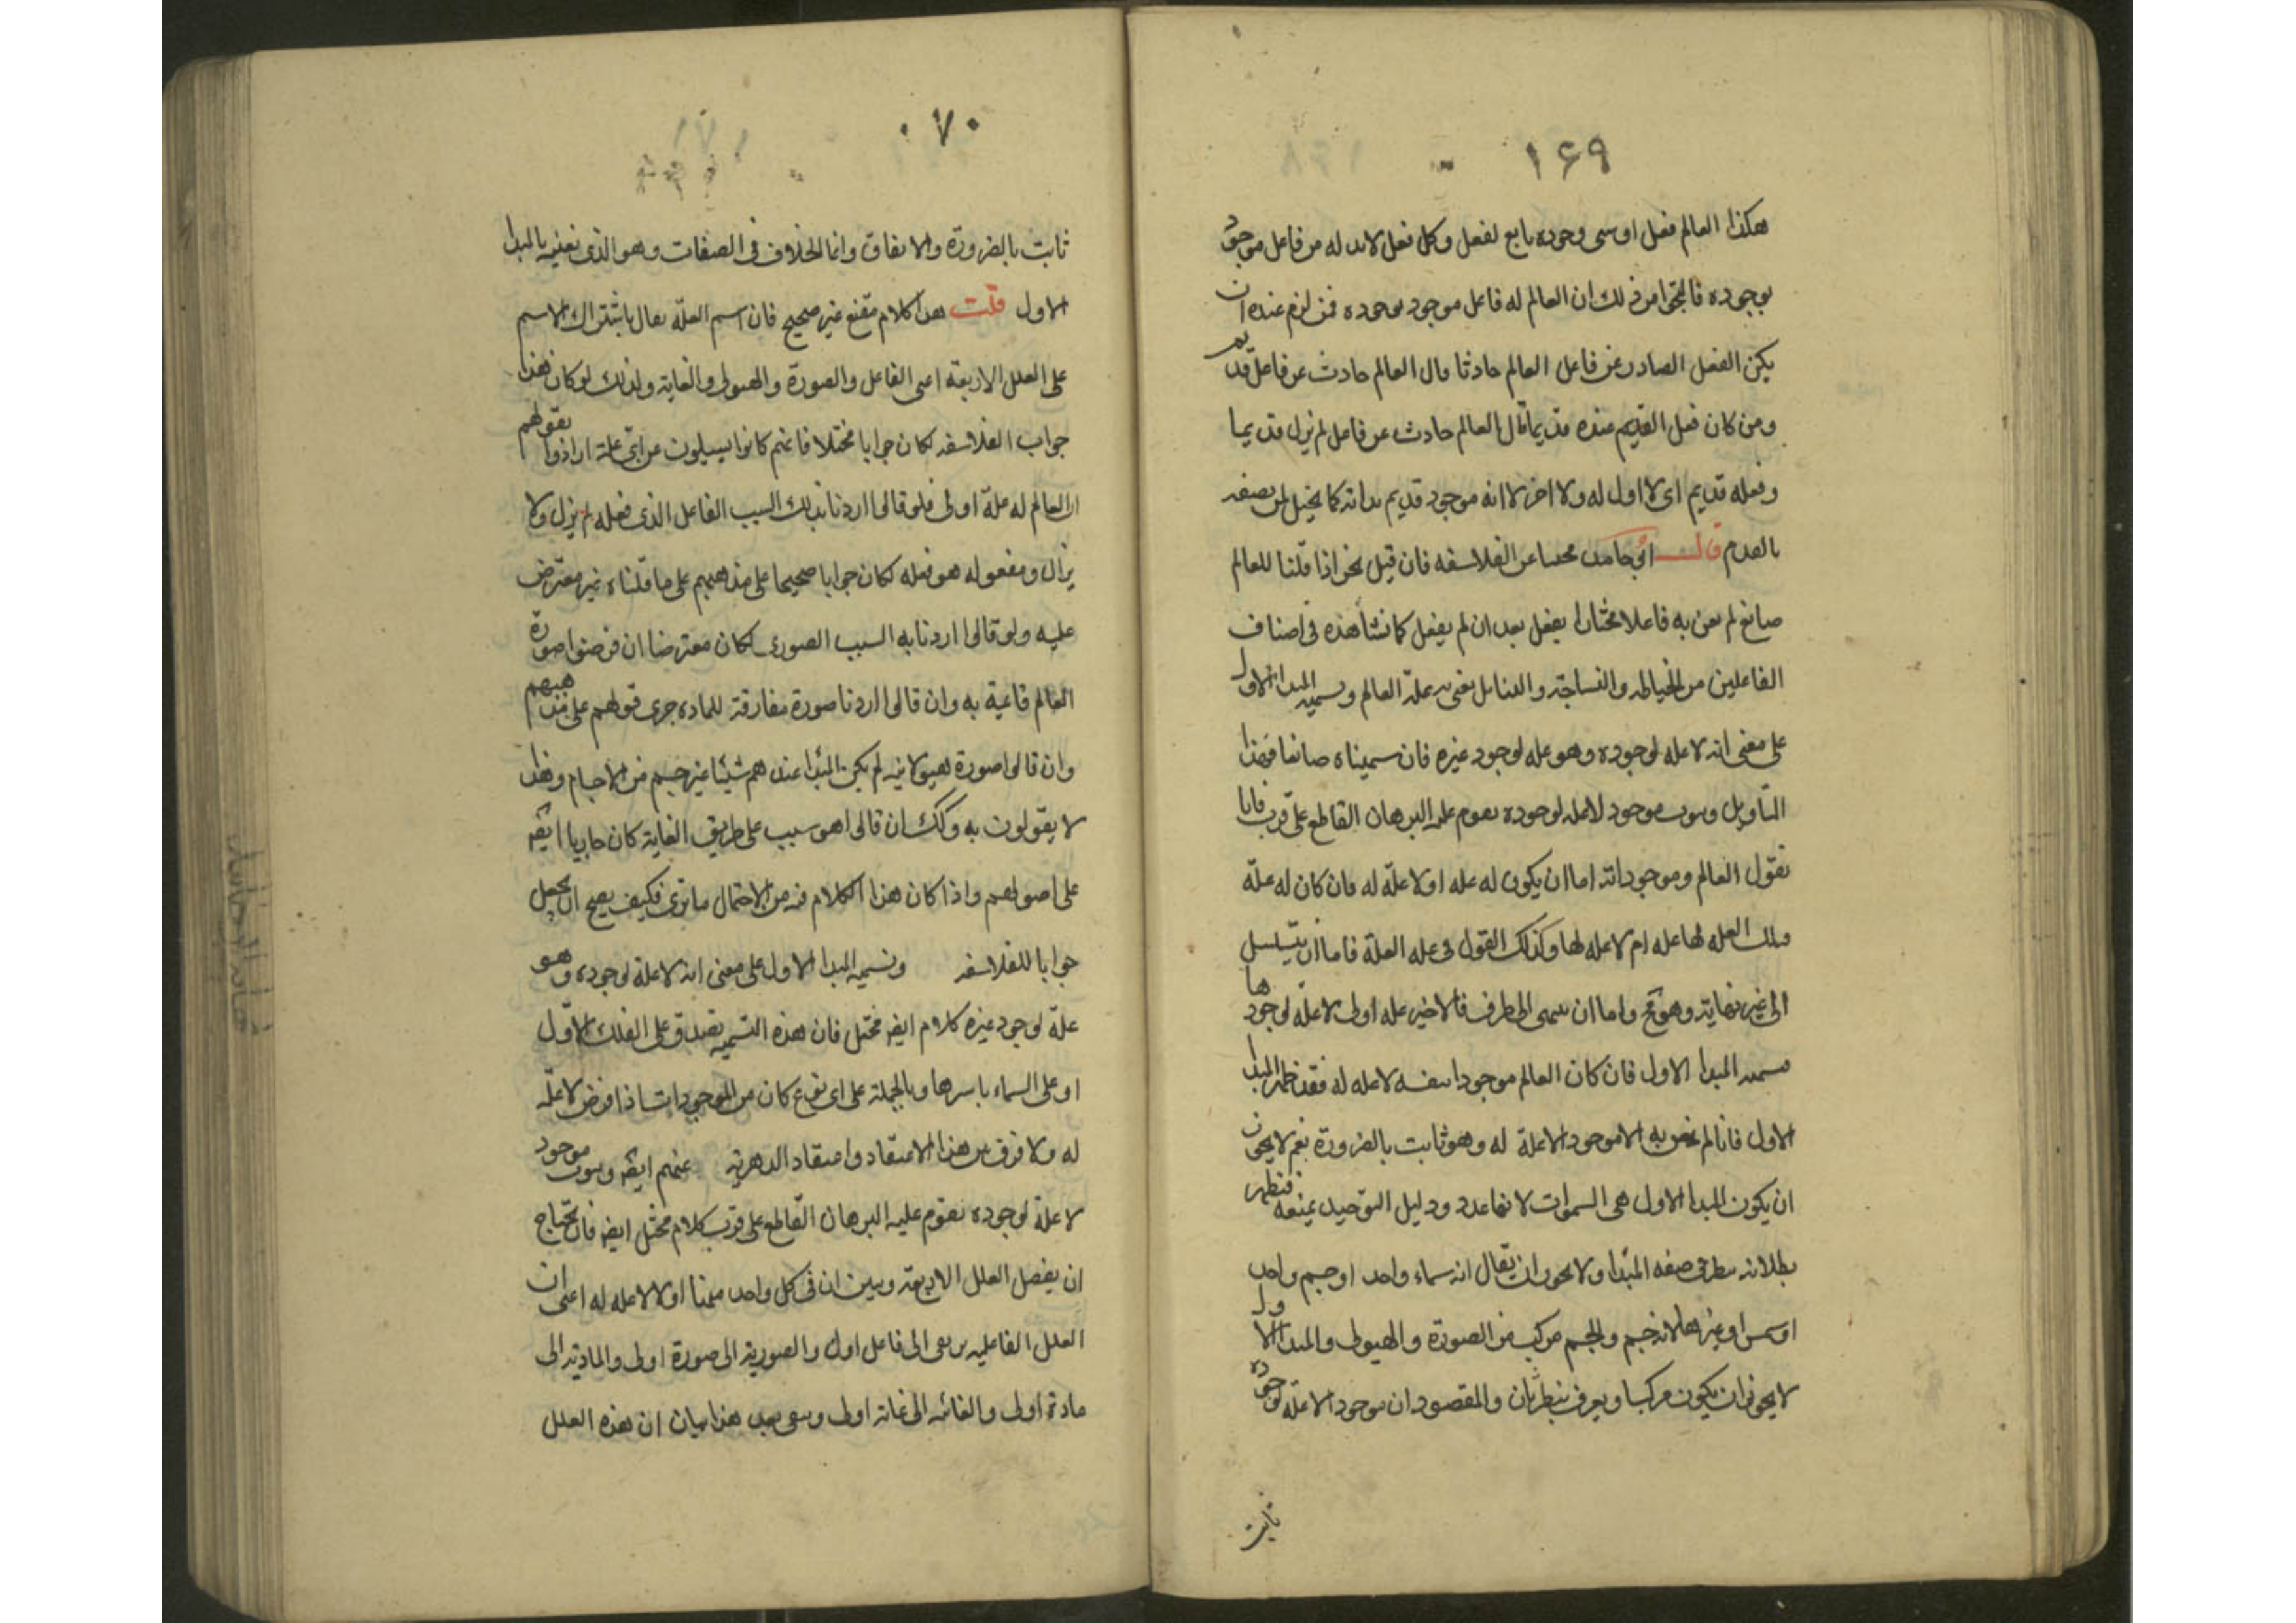 ١٦٩
هكذا العالم فعل او شى وجوده تابع لفعل وكل فعل لابد له من فاعل موجود
بوجوده فانتجوا من ذلك ان العالم له فاعل موجود بوجوده فمن لزم عنده ان
يكون الفعل الصادر عن فاعل العالم حادثا قال العالم حادث عن فاعل قديم
ومن كان فعل القديم عنده قديما قال العالم حادث عن فاعل لم يزل قديما
وفعله قديم اى لا اول له ولا اخر لا انه موجود قديم بذاته كما يخيل لمن يصفه
بالعدم قال ابو حامد مجيبا عن الفلاسفه فان قيل نحن اذا قلنا للعالم
صانع لم نعن به فاعلا مختارا يفعل بعد ان لم يفعل كما نشاهده فى اصناف
الفاعلين من الخياط والنساج والبنا بل نعنى به علة العالم ونسميه المبدا الاول
على معنى انه لا علة لوجوده وهو علة لوجود غيره فان سميناه صانعا فبهذا
التاويل وثبوت موجود لا علة لوجوده يقوم عليه البرهان القاطع على قرب فانا
نقول العالم وموجوداته اما ان يكون له علة او لا علة له فان كان له علة
فتلك العلة لها علة ام لا علة لها وكذلك القول فى علة العلة فاما ان يتسلسل
الى غير نهاية وهو مح واما ان ينتهى الى طرف فالاخير علة اولى لا علة لوجودها
فنسميه المبدا الاول فان كان العالم موجودا بنفسه لا علة له فقد ظهر المبدا
الاول فانا لم نعن به الا موجود الا علة له وهو ثابت بالضرورة نعم لا يجوز
ان يكون المبدا الاول هى السموات لانها عدد ودليل التوحيد يمنعه فنظهر
بطلانه بنظر فى صفة المبدا ولا يجوز ان يقال انه سماء واحد او جسم واحد
او شمس او غيرها لانه جسم والجسم مركب من الصورة والهيولى والمبدا الاول
لا يجوز ان يكون مركبا ويعرف بنظر ثان والمقصود ان موجود الا علة لوجوده
ثابت
٠٧٠
ثابت بالضرورة والاتفاق وانما الخلاف فى الصفات وهو الذى نعنيه بالمبدا
الاول قلت هذا كلام مقنع غير صحيح فان اسم العلة يقال باشتراك الاسم
على العلل الاربعة اعنى الفاعل والصورة والهيولى والغاية ولذلك لو كان هذا
جواب الفلاسفه لكان جوابا مختلا فانهم كانوا يسيلون عن اى علة ارادوا بقولهم
ان العالم له علة اولى فلو قالوا اردنا بذلك السبب الفاعل الذى فعله لم يزل ولا
يزال ومفعوله هو فعله لكان جوابا صحيحا على مذهبهم على ما قلناه غير معترض
عليه ولو قالوا اردنا به السبب الصورى لكان معترضا ان فرضوا صورة
العالم قائمة به وان قالوا اردنا صورة مفارقة للماده جرى قولهم على مذهبهم
وان قالوا صورة هيولانيه لم يكن المبدا عندهم شيئا غير جسم من الاجسام وهذا
لا يقولون به وكك ان قالوا هو سبب على طريق الغاية كان جاريا ايضه
على اصولهم واذا كان هذا الكلام فيه من الاحتمال ما ترى فكيف يصح ان يجعل
جوابا للفلاسفه ونسميه المبدا الاول على معنى انه لا علة لوجوده وهو
علة لوجود غيره كلام ايضه مختل فان هذه التسميه تصدق على الفلك الاول
او على السماء باسرها وبالجملة على اى نوع كان من الموجودات اذا فرض لا علة
له ولا فرق بين هذا الاعتقاد واعتقاد الدهرية عنهم ايضه وثبوت موجود
لا علة لوجوده يقوم عليه البرهان القاطع على قرب كلام مختل ايضه فانه يحتاج
ان يفصل العلل الاربعة ويبين ان فى كل واحد منها اولا لا علة له اعنى ان
العلل الفاعليه ترتقى الى فاعل اول والصورية الى صورة اولى والمادية الى
مادة اولى والغائيه الى غاية اولى وبقى بعد هذا بيان ان هذه العلل